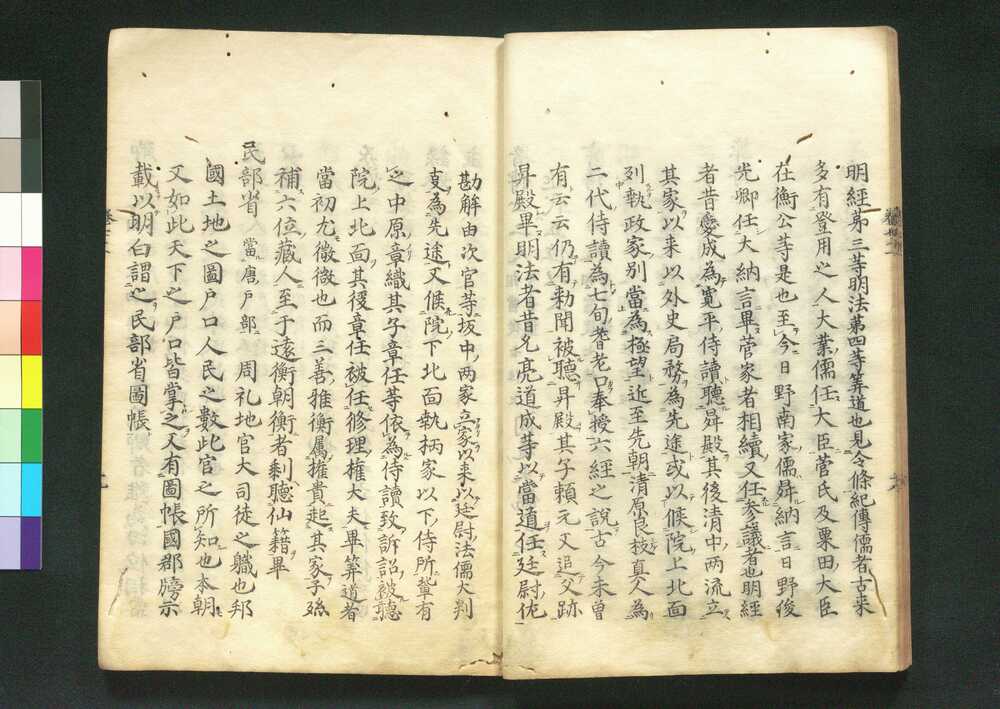 明経第三等明法第四等筭道也見令條紀傳儒者古来
多有登用之人大業儒任大臣菅氏及粟田大臣
在衡公等是也至今日野南家儒舜納言日野俊
光卿任大納言畢菅家者相續又任参議者也明経
者昔愛成為寛平侍讀聴昇殿其後清中両流立
其家以来以外史局務為先途或以候院上北面
列執政家別當為極望近至先朝清原良枝真人為
二代侍讀為七旬耆老口奉授六経之説古今未曽
有云云仍有勅聞被聴昇殿其子頼元又追父跡
昇殿畢明法者昔允亮道成等以當道任廷尉佐
勘解由次官等坂中両家立家以来以廷尉法儒大判
事為先途又候院下北面執柄家以下侍所輩有
之中原章職其子章任等依為侍讀致訴訟被聴
院上北面其後章任被任修理権大夫畢筭道者
當初尤微微也而三善雅衡属権貴起其家子孫
補六位蔵人至于遠衡朝衡者剰聴仙籍畢
民部省 當唐戸部 周礼地官大司徒之職也邦
國土地之圖戸口人民之數此官之所知也本朝
又如此天下之戸口皆掌之又有圖帳國郡牓示
載以明白謂之民部省圖帳